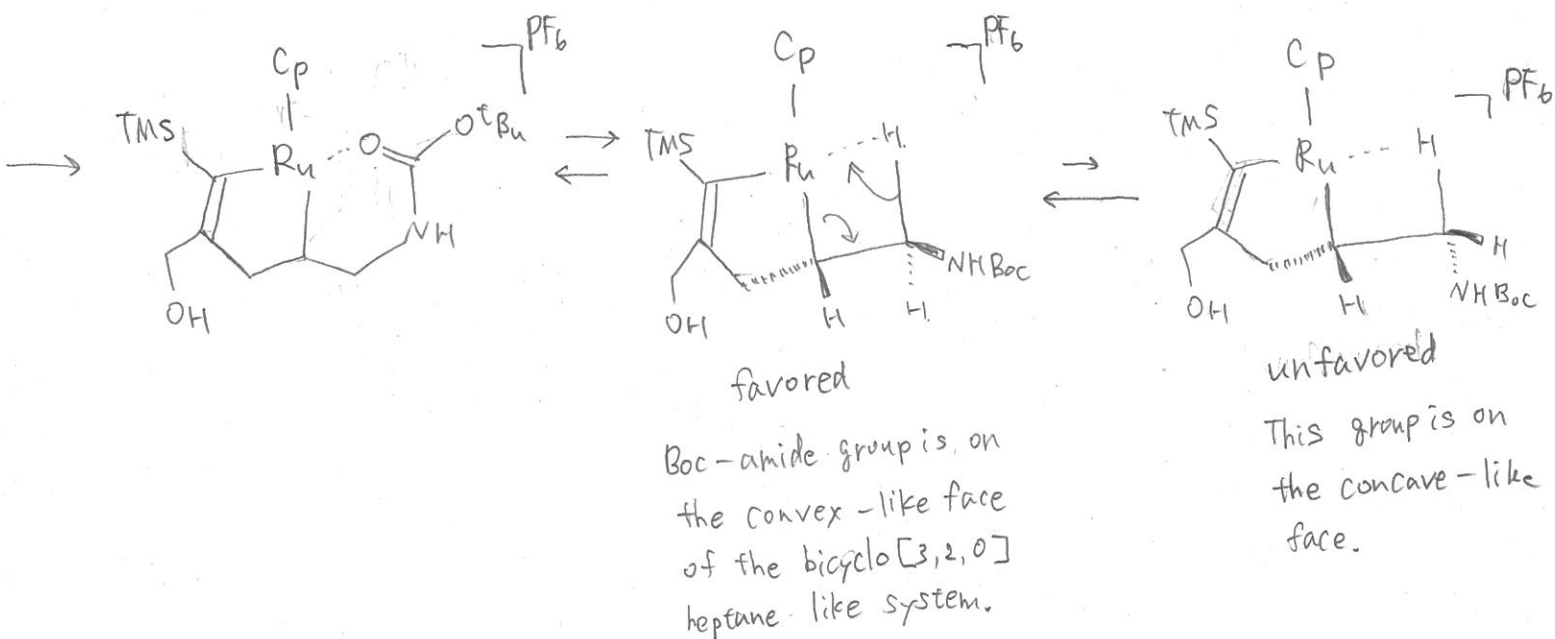 Cp
PF6
TMS
Ru
O
OtBu
NH
OH
Cp
PF6
TMS
Ru
H
NHBoc
H
H
OH
favored
Boc-amide group is on
the convex-like face
of the bicyclo[3,2,0]
heptane like system.
Cp
PF6
TMS
Ru
H
H
NHBoc
H
OH
unfavored
This group is on
the concave-like
face.